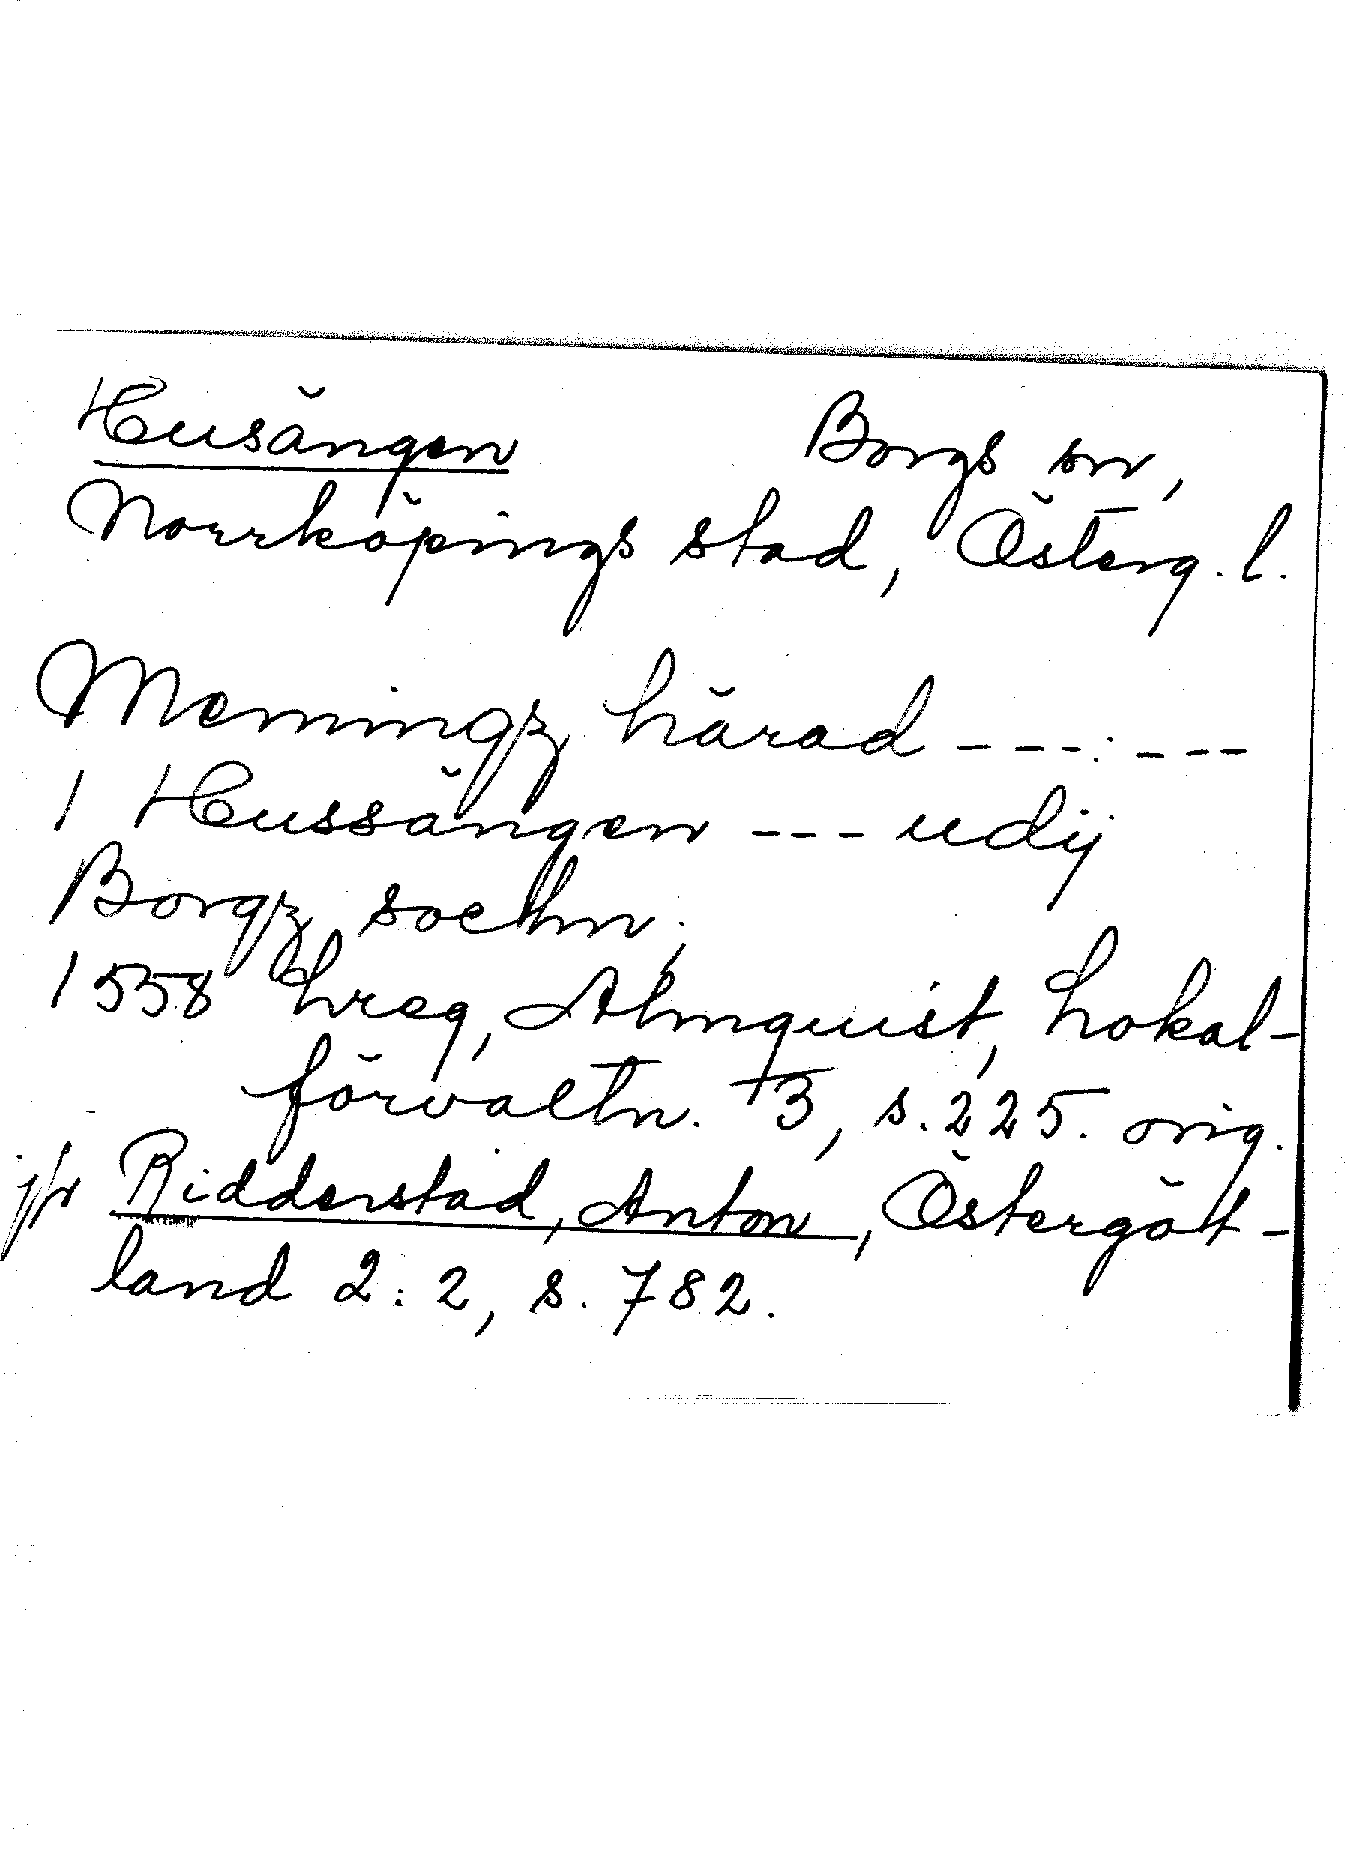 Husängen Borgs sn,
Norrköpings stad, Österg. l.
Memingz härad ---:---
1 Hussängen --- udij
Borgz sochn;
1558 hreg, Almquist, Lokal-
förvaltn. 3, s. 225. orig.
jfr Ridderstad, Anton, Östergöt-
land 2:2, s. 782.